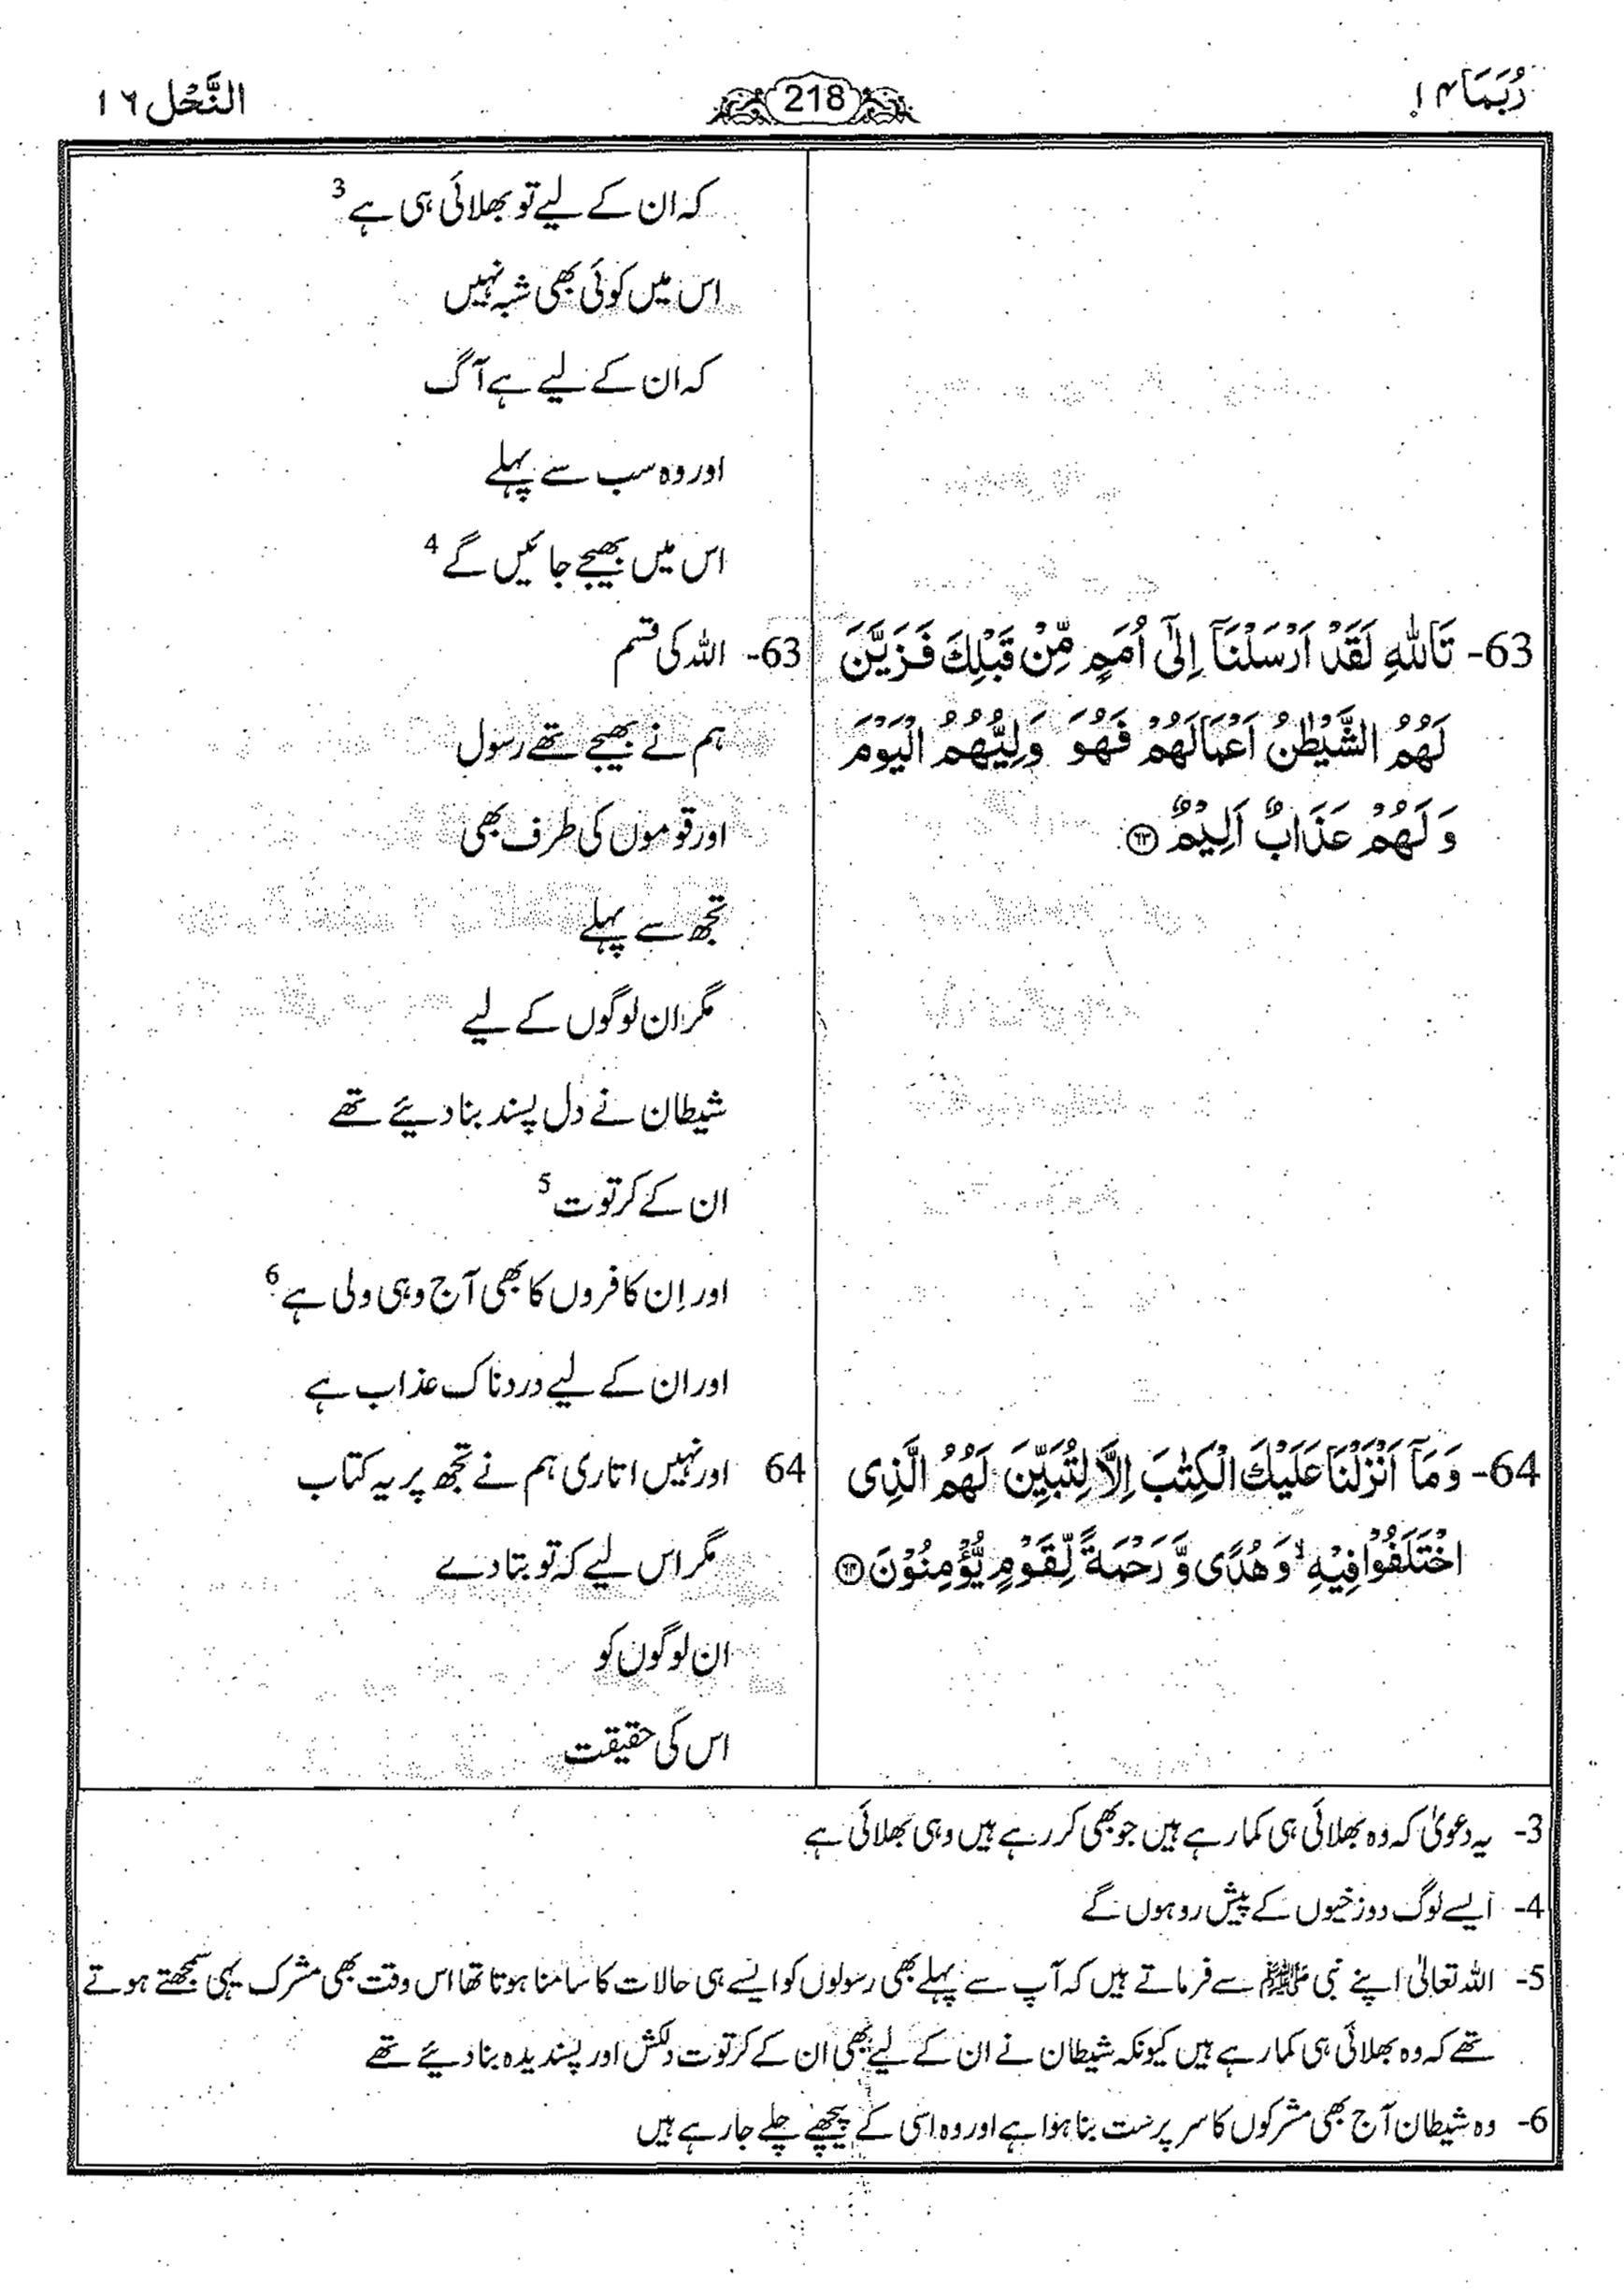 رُبَمَا ۱۴
218
النَّحْل ۱۶
کہ ان کے لیے تو بھلائی ہی ہے 3
اس میں کوئی بھی شبہ نہیں
کہ ان کے لیے ہے آگ
اور وہ سب سے پہلے
اس میں بھیجے جائیں گے 4
63- تَاللّٰهِ لَقَدْ اَرْسَلْنَاۤ اِلٰۤى اُمَمٍ مِّنْ قَبْلِكَ فَزَیَّنَ
لَهُمُ الشَّیْطٰنُ اَعْمَالَهُمْ فَهُوَ وَلِیُّهُمُ الْیَوْمَ
وَ لَهُمْ عَذَابٌ اَلِیْمٌ ۶۳
63- اللہ کی قسم
ہم نے بھیجے تھے رسول
اور قوموں کی طرف بھی
تجھ سے پہلے
مگر ان لوگوں کے لیے
شیطان نے دل پسند بنا دیئے تھے
ان کے کرتوت 5
اور اِن کافروں کا بھی آج وہی ولی ہے 6
اور ان کے لیے دردناک عذاب ہے
64- وَ مَاۤ اَنْزَلْنَا عَلَیْكَ الْكِتٰبَ اِلَّا لِتُبَیِّنَ لَهُمُ الَّذِی
اخْتَلَفُوْا فِیْهِ ۙ وَ هُدًى وَّ رَحْمَةً لِّقَوْمٍ یُّؤْمِنُوْنَ ۶۴
64 اور نہیں اتاری ہم نے تجھ پر یہ کتاب
مگر اس لیے کہ تو بتا دے
ان لوگوں کو
اس کی حقیقت
3- یہ دعویٰ کہ وہ بھلائی ہی کما رہے ہیں جو بھی کر رہے ہیں وہی بھلائی ہے
4- ایسے لوگ دوزخیوں کے پیش رو ہوں گے
5- اللہ تعالیٰ اپنے نبی ﷺ سے فرماتے ہیں کہ آپ سے پہلے بھی رسولوں کو ایسے ہی حالات کا سامنا ہوتا تھا اس وقت بھی مشرک یہی سمجھتے ہوتے
تھے کہ وہ بھلائی ہی کما رہے ہیں کیونکہ شیطان نے ان کے لیے بھی ان کے کرتوت دلکش اور پسندیدہ بنا دیئے تھے
6- وہ شیطان آج بھی مشرکوں کا سرپرست بنا ہوا ہے اور وہ اسی کے پیچھے چلے جا رہے ہیں